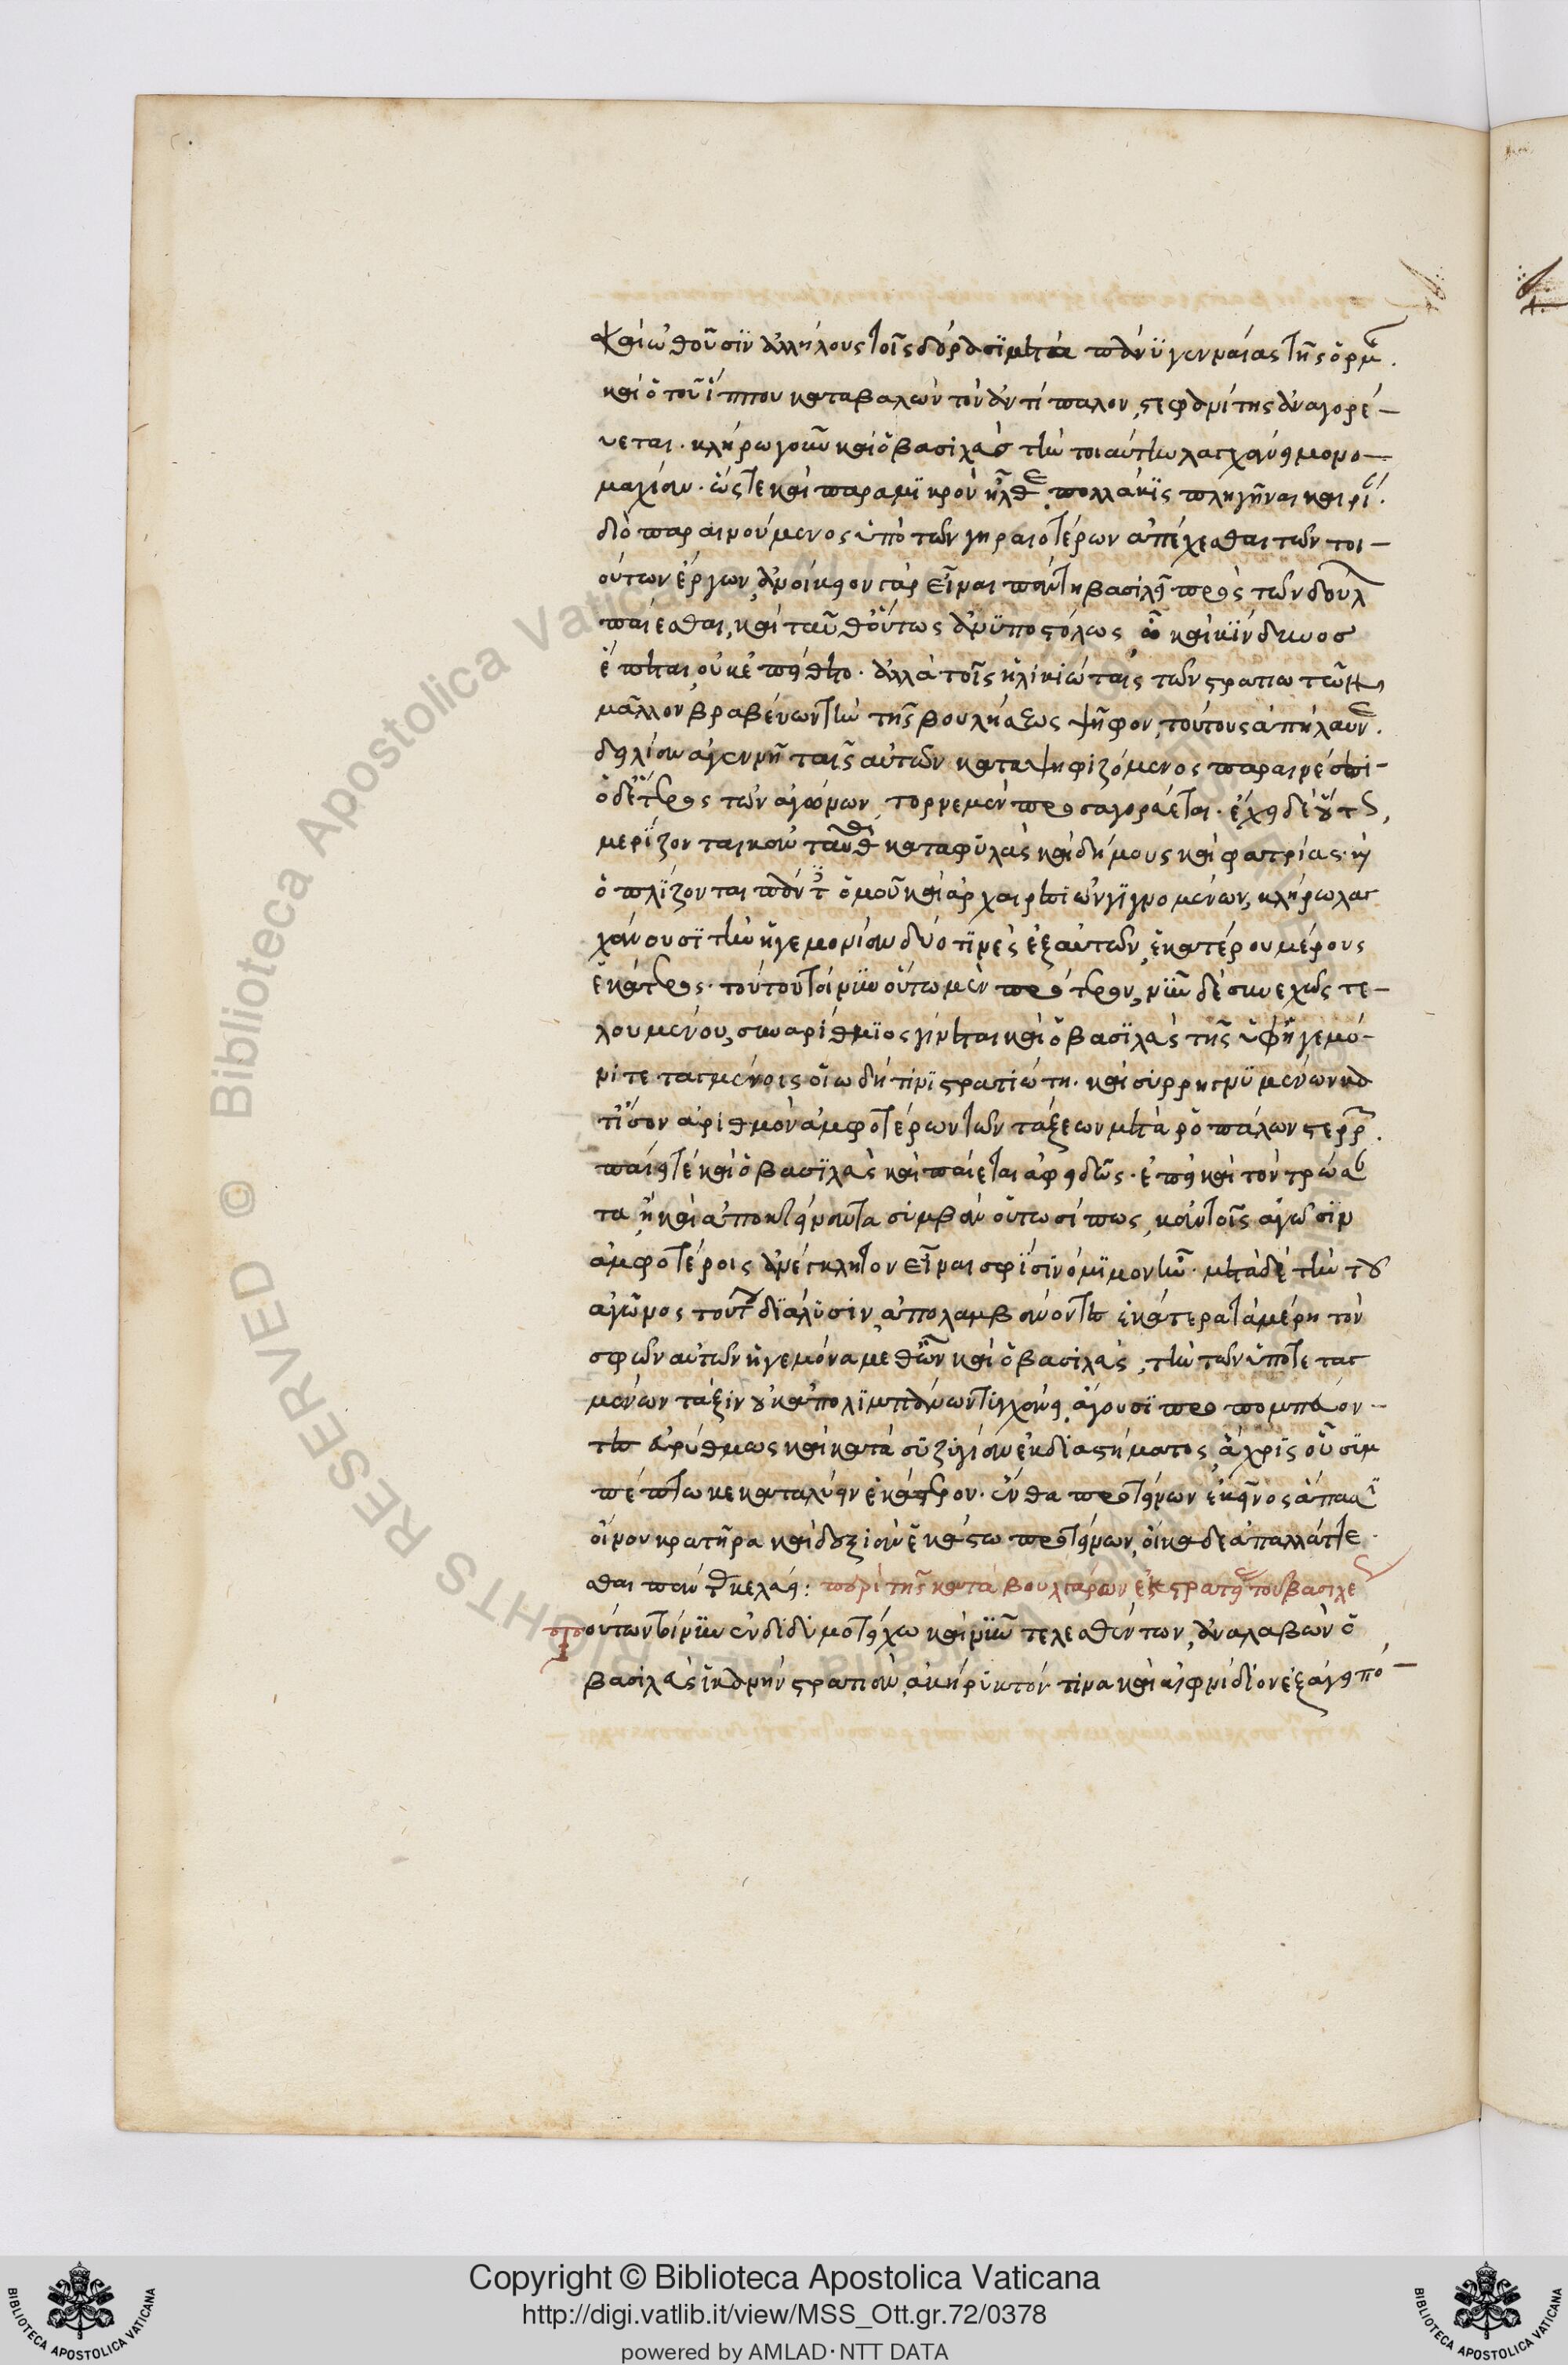 καὶ ὠθοῦσιν ἀλλήλους τοῖς δόρασι μετὰ πάνυ γενναίας τῆς ὁρμῆς.
καὶ ὁ τοῦ ἵππου καταβαλὼν τὸν ἀντίπαλον, στεφανίτης ἀναγορε-
ύεται. κλήρῳ γοῦν καὶ ὁ βασιλεὺς τὴν τοιαύτην λαγχάνει μονο-
μαχίαν. ὥστε καὶ παρὰ μικρὸν ἦλθε πολλάκις πληγῆναι καιρίαν.
διὸ παραινούμενος ὑπὸ τῶν γηραιοτέρων ἀπέχεσθαι τῶν τοι-
ούτων ἔργων, ἀνοίκειον γὰρ εἶναι πάντη βασιλεῖ πρὸς τῶν δούλων
παίεσθαι, καὶ ταῦθ' οὕτως ἀνυποστόλως, ᾧ καὶ κίνδυνος
ἕπεται, οὐκ ἐπείθετο. ἀλλὰ τοῖς ἡλικιώταις τῶν στρατιωτῶν
μᾶλλον βραβεύων τὴν τῆς βουλήσεως ψῆφον, τούτους ἀπήλαυνε.
δειλίαν ἀγεννῆ ταῖς αὐτῶν καταψηφιζόμενος παραινέσεσι.
ὁ δ' ἕτερος τῶν ἀγώνων, τορνεμὲν προσαγορεύεται. ἔχει δὲ οὕτως,
μερίζονται κἀνταῦθα κατὰ φυλὰς καὶ δήμους καὶ φατρίας. καὶ
ὁπλίζονται πάντες ὁμοῦ καὶ ἀρχαιρεσιῶν γιγνομένων, κλήρῳ λαγ
χάνουσι τὴν ἡγεμονίαν δύο τινὲς ἐξ αὐτῶν, ἑκατέρου μέρους
ἑκάτερος. τούτου τοίνυν οὕτω μὲν πρότερον, νῦν δὲ συνεχῶς τε-
λουμένου, συναρίθμιος γίνεται καὶ ὁ βασιλεὺς τῆς ὑφ' ἡγεμό-
νι τεταγμένοις οἵῳ δή τινι στρατιώτῃ. καὶ συρρηγνυμένων κα
τ' ἴσον ἀριθμὸν ἀμφοτέρων τῶν τάξεων μετὰ ῥοπάλων στερρῶν.
παίει τε καὶ ὁ βασιλεὺς καὶ παίεται ἀφειδῶς. ἐπεὶ καὶ τὸν τρώσαν
τα, ἢ καὶ ἀποκτείναντα συμβὰν οὕτωσί πως, κἀν τοῖς ἀγῶσιν
ἀμφοτέροις ἀνέγκλητον εἶναι σφίσι νόμιμον ἦν. μετὰ δὲ τὴν τοῦ
ἀγῶνος τούτου διάλυσιν, ἀπολαμβάνοντα ἑκάτερα τὰ μέρη τὸν
σφῶν αὐτῶν ἡγεμόνα μεθ' ὧν καὶ ὁ βασιλεὺς, τὴν τῶν ὑποτεταγ
μένων τάξιν οὐκ ἀπολιμπάνων τυγχάνει, ἄγουσι προπομπεύον-
τα ἀρύθμως καὶ κατὰ συζυγίαν ἐκ διαστήματος, ἄχρις οὗ συμ
πέπτωκε καταλύειν ἑκάτερον. ἔνθα προτείνων ἐκεῖνος ἅπασιν
οἴνου κρατῆρα καὶ δεξιὰν ἑκάστῳ προτείνων, οἴκαδε ἀπαλλάττε
σθαι πᾶσι κελεύει: περὶ τῆς κατὰ βουλγάρων ἐκστρατείας τοῦ βασιλέως
τοιούτων τοίνυν ἐν διδυμοτείχῳ καὶ νῦν τελεσθέντων, ἀναλαβὼν ὁ
βασιλεὺς ἱκανὴν στρατιὰν, ἀκήρυκτόν τινα καὶ αἰφνίδιον ἐξάγει πό-
Copyright © Biblioteca Apostolica Vaticana
http://digi.vatlib.it/view/MSS_Ott.gr.72/0378
powered by AMLAD·NTT DATA
BIBLIOTECA APOSTOLICA VATICANA
BIBLIOTECA APOSTOLICA VATICANA